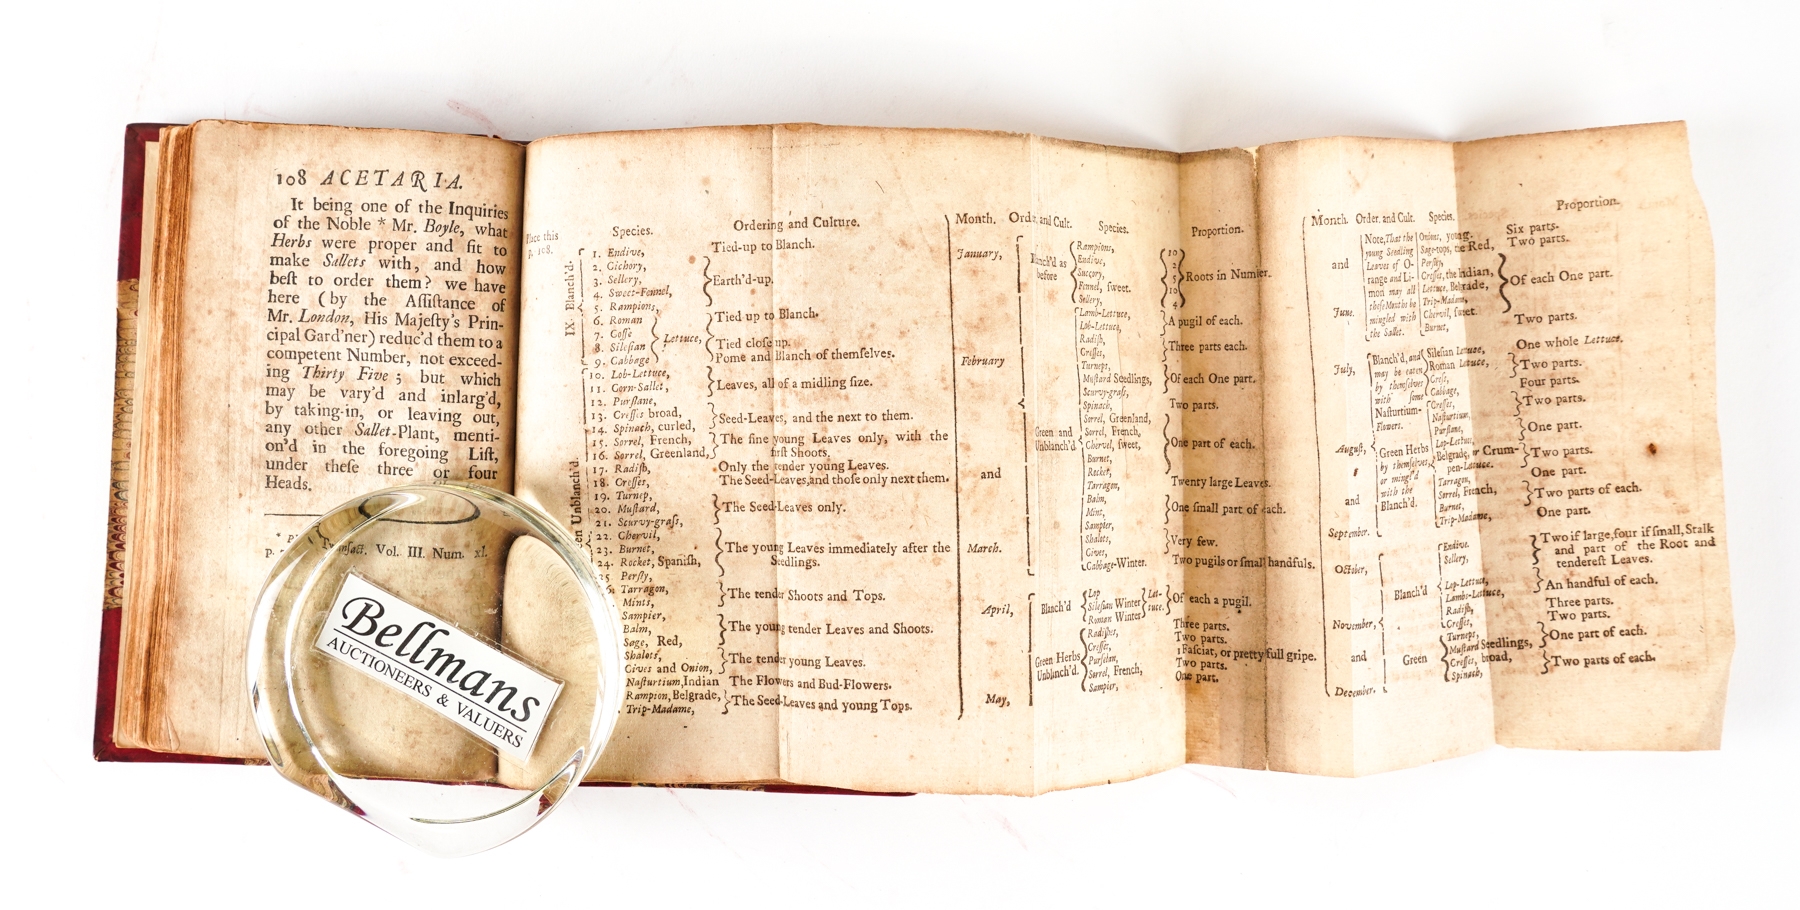 108 ACETARIA.
It being one of the Inquiries
of the Noble * Mr. Boyle, what
Herbs were proper and fit to
make Sallets with, and how
beſt to order them? we have
here (by the Aſſiſtance of
Mr. London, His Majeſty's Prin-
cipal Gard'ner) reduc'd them to a
competent Number, not exceed-
ing Thirty Five; but which
may be vary'd and inlarg'd,
by taking-in, or leaving out,
any other Sallet-Plant, menti-
on'd in the foregoing Liſt,
under theſe three or four
Heads.
Tranſact. Vol. III. Num. xl.
Bellmans
AUCTIONEERS & VALUERS
Place this
p. 108.
Species.
Ordering and Culture.
IX. Blanch'd.
1. Endive,
Tied-up to Blanch.
2. Cichory,
3. Sellery,
4. Sweet-Fennel,
5. Rampions,
Earth'd-up.
6. Roman
7. Coſſe
8. Sileſian
9. Cabbage
Lettuce,
Tied up to Blanch.
Tied cloſe up.
Pome and Blanch of themſelves.
Unblanch'd.
10. Lob-Lettuce,
11. Corn-Sallet,
12. Purſlane,
Leaves, all of a midling ſize.
13. Creſſes broad,
14. Spinach, curled,
Seed-Leaves, and the next to them.
15. Sorrel, French,
16. Sorrel, Greenland,
The fine young Leaves only, with the
firſt Shoots.
17. Radiſh,
Only the tender young Leaves.
18. Creſſes,
The Seed-Leaves, and thoſe only next them.
19. Turnep,
20. Muſtard,
21. Scurvy-graſs,
The Seed-Leaves only.
22. Chervil,
23. Burnet,
24. Rocket, Spaniſh,
25 Perſly,
The young Leaves immediately after the
Seedlings.
Tarragon,
Mints,
The tender Shoots and Tops.
Sampier,
Balm,
Sage, Red,
The young tender Leaves and Shoots.
Shalots,
Cives and Onion,
The tender young Leaves.
Naſturtium, Indian
The Flowers and Bud-Flowers.
Rampion, Belgrade,
Trip-Madame,
The Seed-Leaves and young Tops.
Month.
January,
February
and
March.
April,
May,
Order. and Cult.
Species.
Proportion.
Blanch'd as
before
Rampions,
Endive,
Succory,
Fennel, ſweet.
Sellery,
10
2
5
10
4
Roots in Number.
Green and
Unblanch'd
Lamb-Lettuce,
Lob-Lettuce,
Radiſh,
Creſſes,
A pugil of each.
Three parts each.
Turneps,
Muſtard Seedlings,
Scurvy-graſs,
Spinach,
Of each One part.
Two parts.
Sorrel, Greenland,
Sorrel, French,
Chervil, ſweet,
Burnet,
Rocket,
One part of each.
Tarragon,
Twenty large Leaves.
Balm,
Mint,
Sampier,
One ſmall part of each.
Shalots,
Cives,
Very few.
Cabbage-Winter.
Two pugils or ſmall handfuls.
Blanch'd
Lop
Sileſian Winter
Roman Winter
Let-
tuce.
Of each a pugil.
Green Herbs
Unblanch'd.
Radiſhes,
Creſſes,
Purſelan,
Sorrel, French,
Sampier,
Three parts.
Two parts.
1 Faſciat, or pretty full gripe.
Two parts.
One part.
Month.
and
June.
July,
Auguſt,
and
September.
October,
November,
and
December.
Order. and Cult.
Species.
Proportion.
Note, That the
young Seedling
Leaves of O-
range and Li-
mon may all
theſe Months be
mingled with
the Sallet.
Onions, young.
Six parts.
Sage-tops, the Red,
Two parts.
Perſley,
Creſſes, the Indian,
Lettuce, Belgrade,
Trip-Madame,
Chervil, ſweet.
Of each One part.
Burnet,
Two parts.
Blanch'd, and
may be eaten
by themſelves
with ſome
Naſturtium-
Flowers.
Sileſian Lettuce,
One whole Lettuce.
Roman Lettuce,
Creſs,
Two parts.
Cabbage,
Four parts.
Green Herbs
by themſelves,
or mingl'd
with the
Blanch'd.
Creſſes,
Naſturtium,
Two parts.
Purſlane,
Lop-Lettuce,
One part.
Belgrade, or Crum-
pen-Lettuce.
Two parts.
Tarragon,
One part.
Sorrel, French,
Burnet,
Two parts of each.
Trip-Madame,
One part.
Blanch'd
Endive.
Sellery,
Two if large, four if ſmall, Stalk
and part of the Root and
tendereſt Leaves.
Lop-Lettuce,
Lambs-Lettuce,
An handful of each.
Radiſh,
Three parts.
Creſſes,
Two parts.
Green
Turneps,
Muſtard Seedlings,
One part of each.
Creſſes, broad,
Spinach,
Two parts of each.